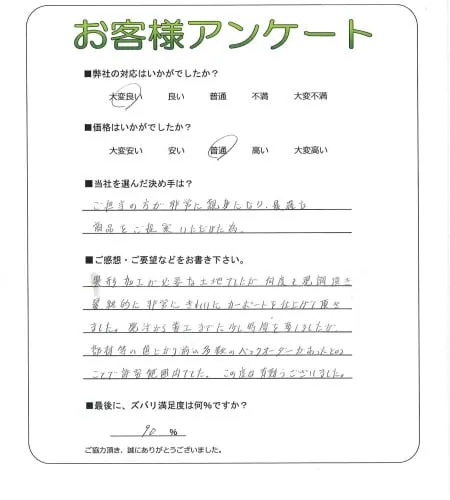 お客様アンケート
■弊社の対応はいかがでしたか?
大変良い 良い 普通 不満 大変不満
■価格はいかがでしたか?
大変安い 安い 普通 高い 大変高い
■当社を選んだ決め手は?
ご担当の方が非常に親身になり、最適な
商品をご提案いただけた為。
■ご感想・ご要望などをお書き下さい。
変形加工が必要な土地でしたが何度も現調頂き
最終的に非常にきれいにカーポートを仕上げて頂き
ました。発注から着工までに少し時間を要しましたが、
部材等の値上がり前の多数のバックオーダーがあったとの
ことで許容範囲内でした。この度は有難うございました。
■最後に、ズバリ満足度は何%ですか?
90 %
ご協力頂き、誠にありがとうございました。